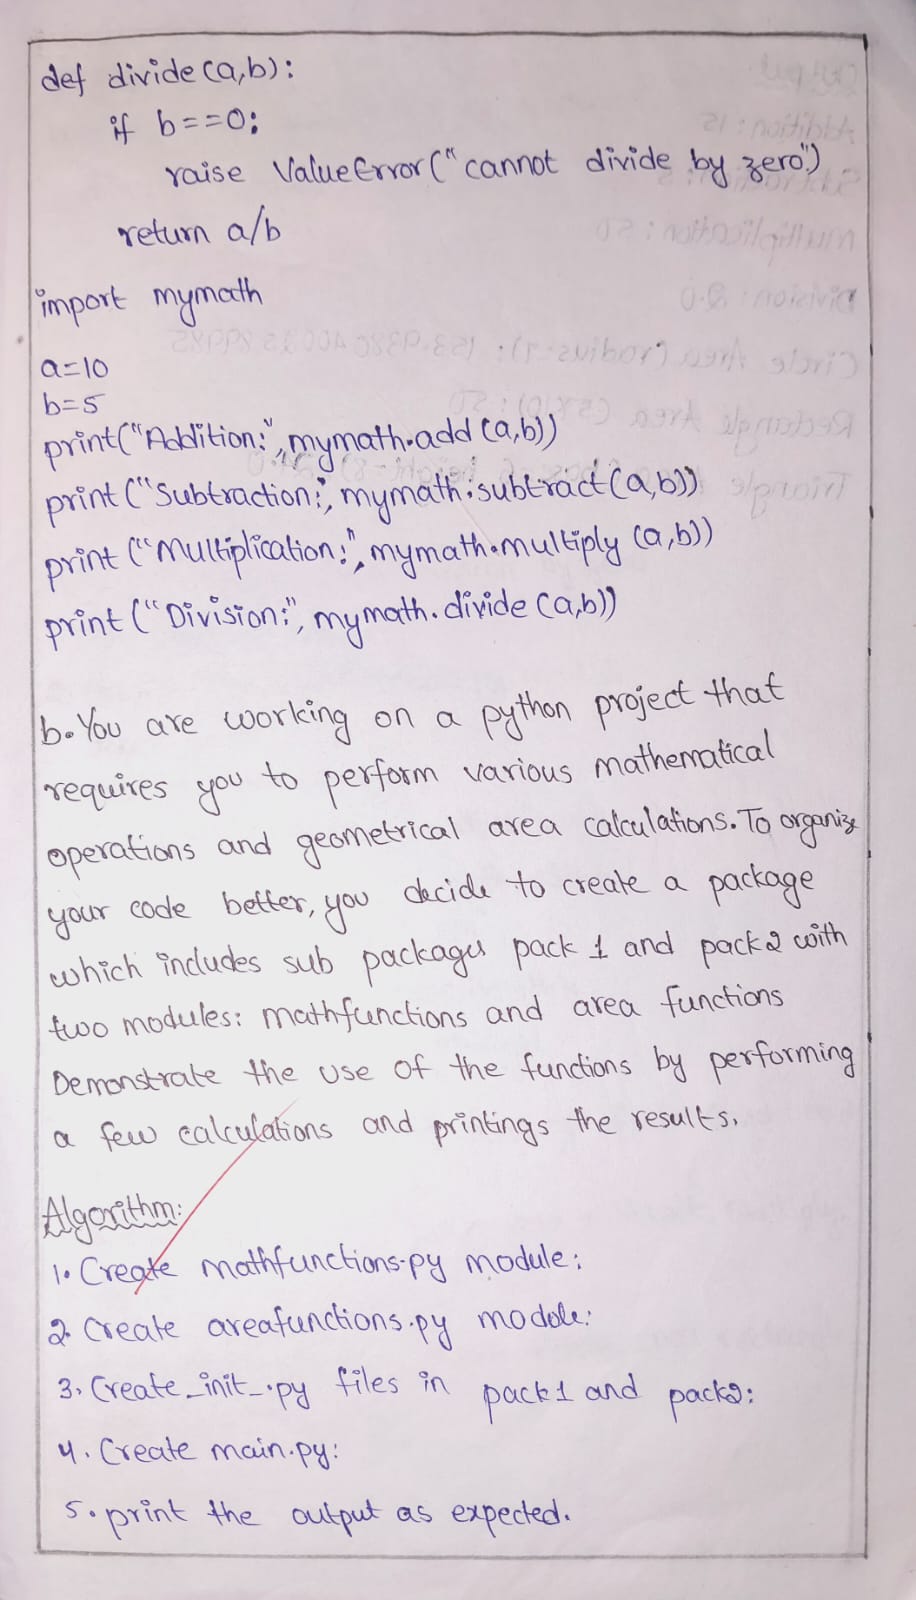 def divide(a,b):
if b==0:
raise ValueError("cannot divide by zero")
return a/b
import mymath
a=10
b=5
print("Addition:",mymath.add(a,b))
print("Subtraction:", mymath.subtract(a,b))
print("Multiplication:",mymath.multiply(a,b))
print("Division:", mymath.divide(a,b))
b. You are working on a python project that
requires you to perform various mathematical
operations and geometrical area calculations. To organize
your code better, you decide to create a package
which includes sub packages pack 1 and pack2 with
two modules: mathfunctions and area functions
Demonstrate the use of the functions by performing
a few calculations and printings the results.
Algorithm:
1. Create mathfunctions.py module:
2. Create areafunctions.py module:
3. Create _init_.py files in pack1 and pack2:
4. Create main.py:
5. print the output as expected.